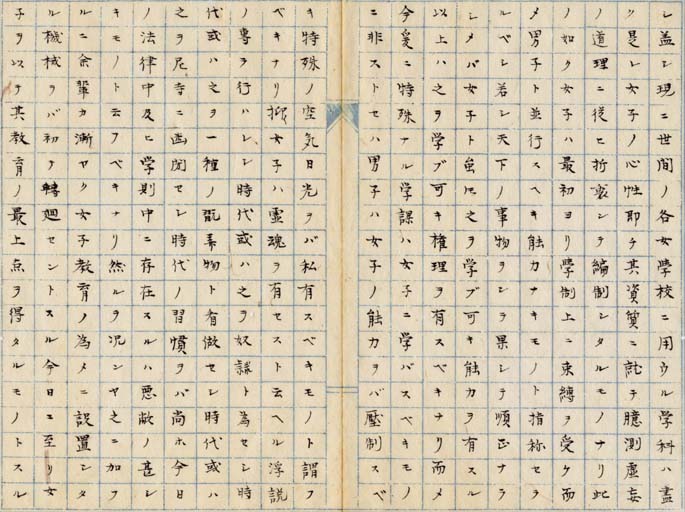 レ盖シ現ニ世間ノ各女學校ニ用ウル学科ハ盡
ク是レ女子ノ心性即チ其資質ニ就テ臆測虚妄
ノ道理ニ従ヒ折衷シテ編制シタルモノナリ此
ノ如ク女子ハ最初ヨリ學制上ニ束縛ヲ受ケ而
メ男子ト並行スヘキ能力ナキモノト指称セラ
ルベシ若シ天下ノ事物ヲシテ果シテ順正ナラ
シメバ女子ト虽𪜈之ヲ学ブ可キ能力ヲ有スル
以上ハ之ヲ学ブ可キ権理ヲ有スベキナリ而メ
今爰ニ特殊ナル学課ハ女子ニ学バスベキモノ
ニ非ストセハ男子ハ女子ノ能力ヲバ壓制スベ
キ特殊ノ空気日光ヲバ私有スベキモノト謂フ
ベキナリ抑女子ハ霊魂ヲ有セスト云ヘル浮説
ノ専ラ行ハレシ時代或ハ之ヲ奴隷ト為セシ時
代或ハ之ヲ一種ノ翫弄物ト看做セシ時代或ハ
之ヲ尼寺ニ幽閉セシ時代ノ習慣ヲバ尚ホ今日
ノ法律中及ヒ学則中ニ存在スルハ悪敝ノ甚シ
キモノト云フベキナリ然ルヲ況ンヤ之ニ加フ
ルニ余輩カ漸ヤク女子教育ノ為メニ設置シタ
ル機械ヲバ初テ轉廻セントスル今日ニ至リ女
子ヲ以テ其教育ノ最上点ヲ得タルモノトスル